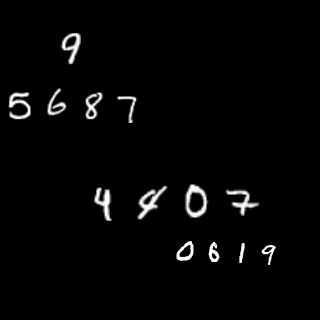 9
5687
4407
0619